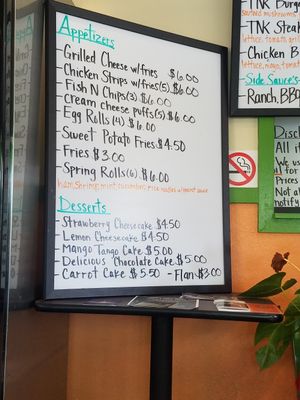 Appetizers
- Grilled Cheese w/fries $6.00
- Chicken Strips w/fries(5) $6.00
- Fish N Chips(3) $6.00
- Cream cheese puffs(5) $6.00
- Egg Rolls (4) $6.00
- Sweet Potato Fries $4.50
- Fries $3.00
- Spring Rolls(6) $6.00
ham, Shrimp, mint, cucumber, rice noodles w/peanut sauce
Desserts
- Strawberry Cheesecake $4.50
- Lemon Cheesecake $4.50
- Mango Tango Cake $5.00
- Delicious Chocolate Cake $5.00
- Carrot Cake $5.50 - Flan $3.00
- TNK Burg
- TNK Steak
lettuce, tomato, gril
- Chicken B
lettuce, mayo, tomato
- Side Sauce's
Ranch, BBQ
Discl
All i
We us
Prices
Not al
notify